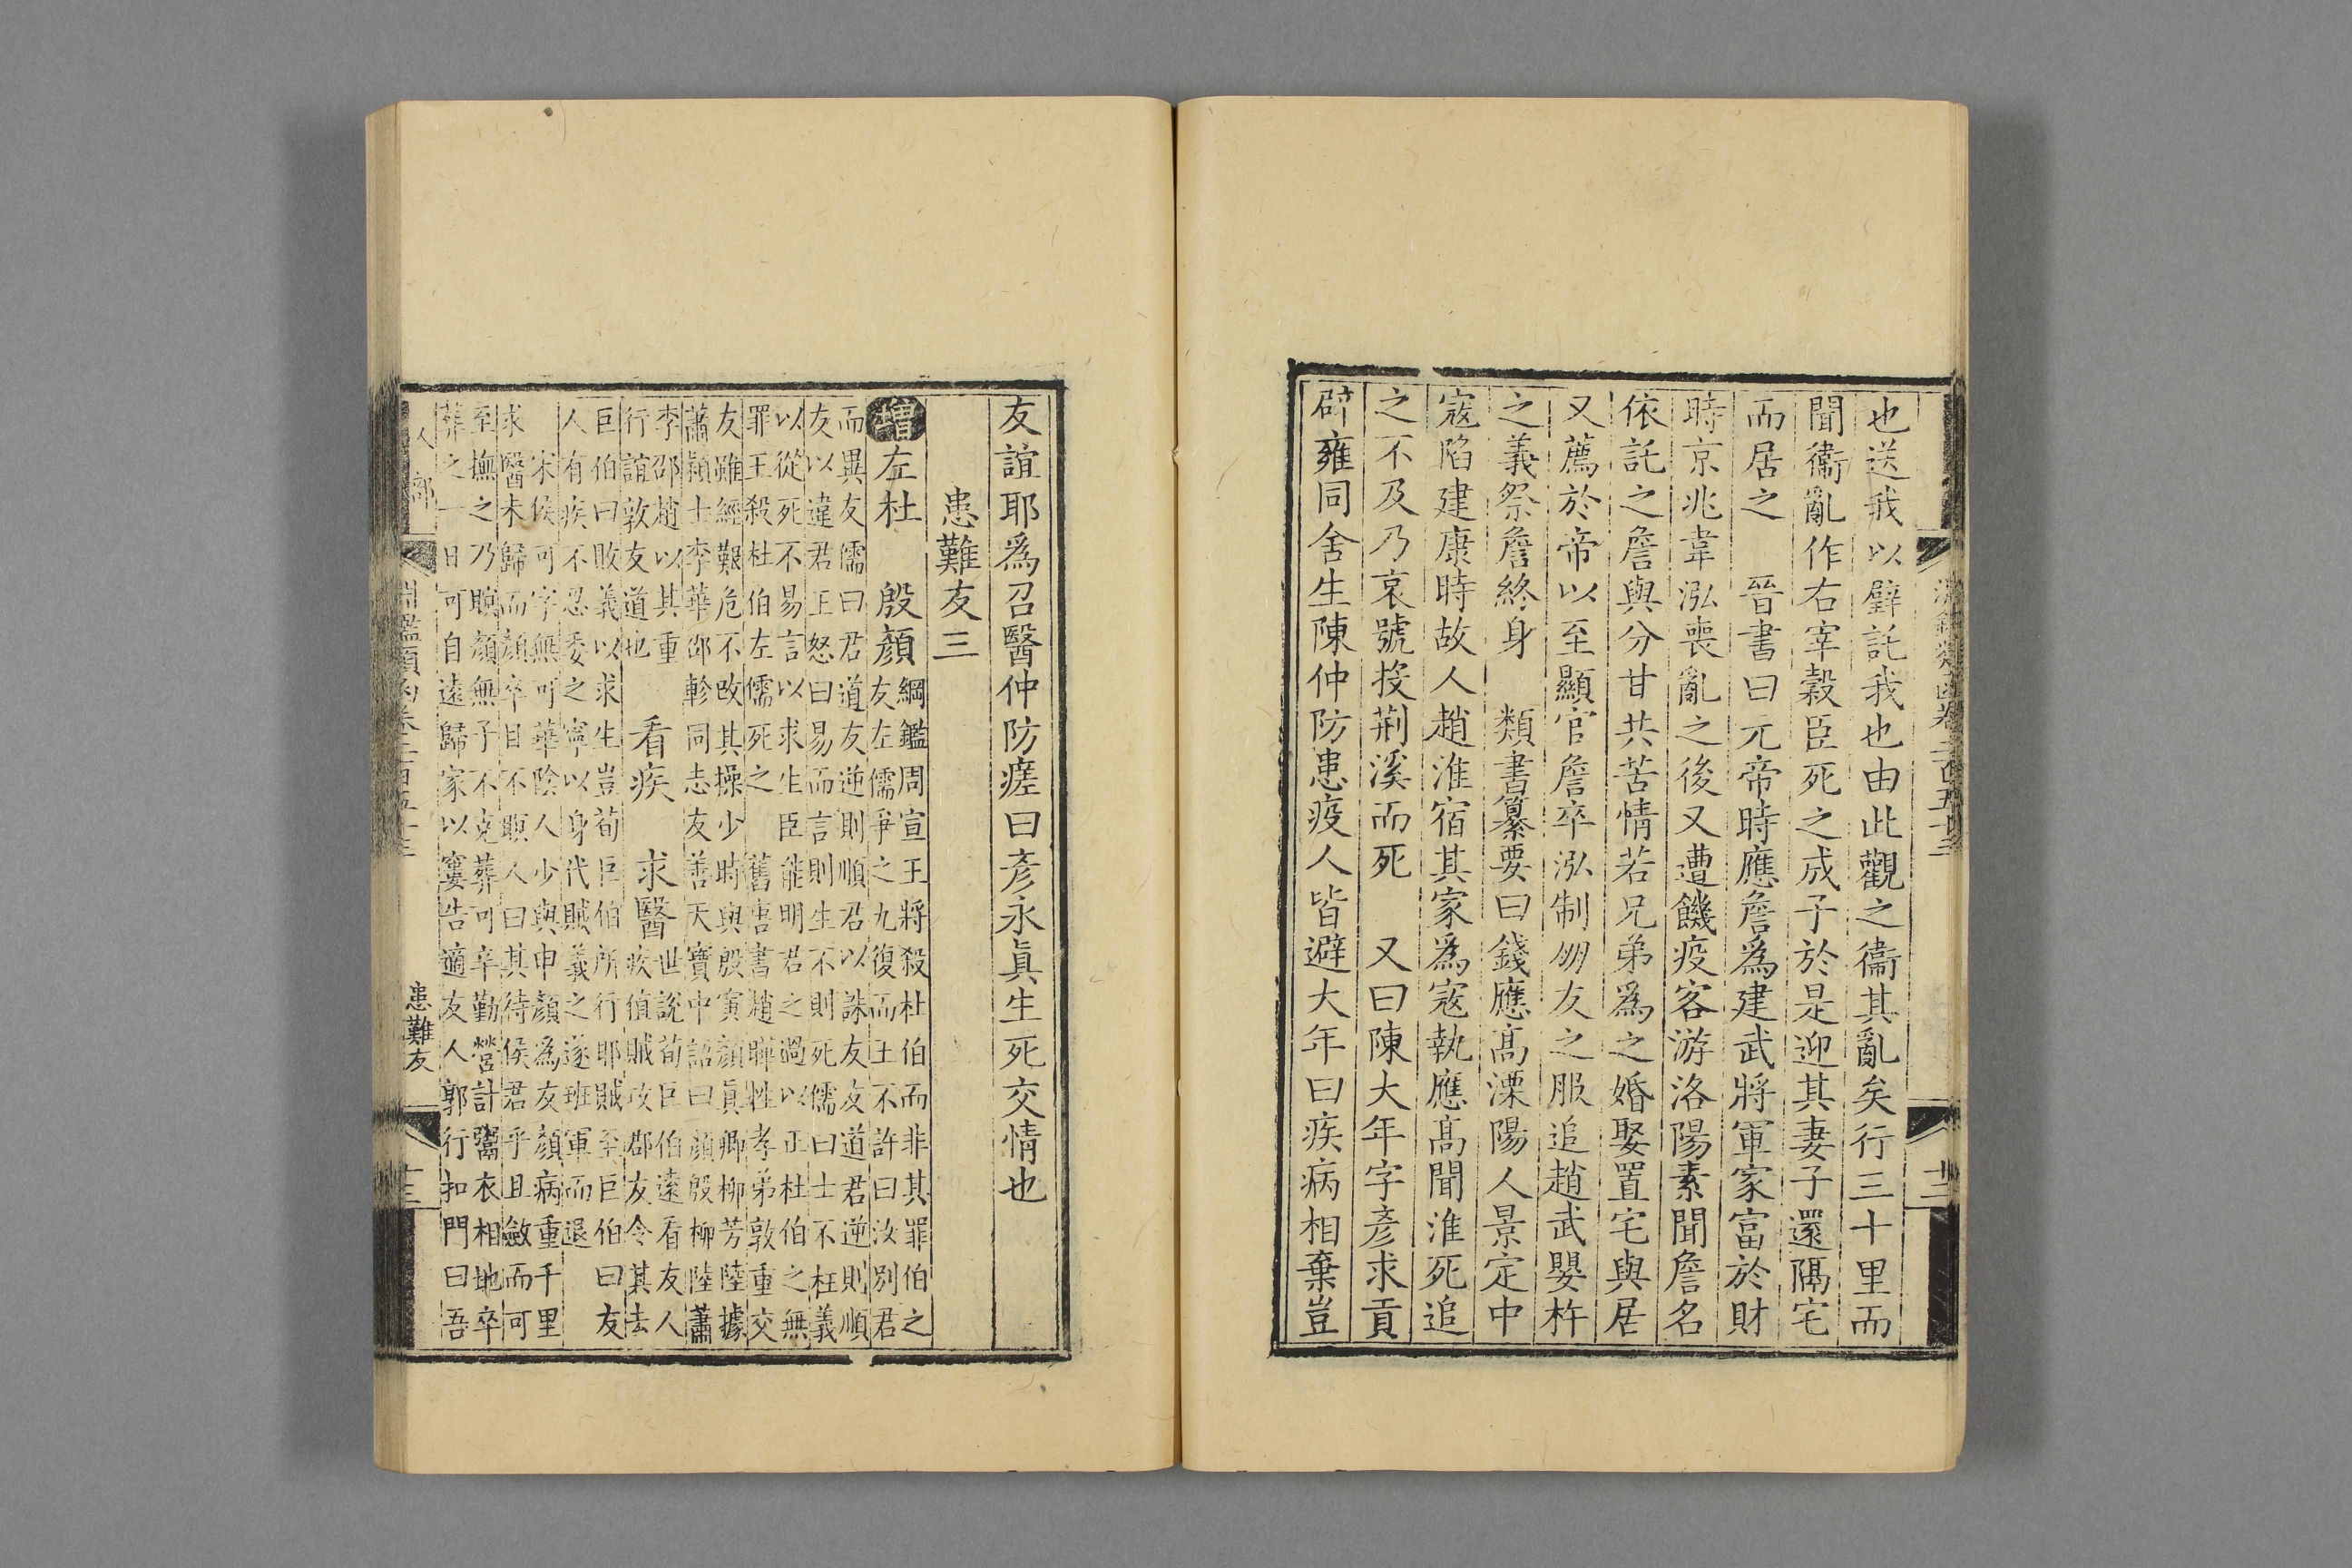 也送我以璧託我也由此觀之衞其亂矣行三十里而
聞衞亂作右宰穀臣死之成子於是迎其妻子還隔宅
而居之　晉書曰元帝時應詹為建武將軍家富於財
時京兆韋泓喪亂之後又遭饑疫客游洛陽素聞詹名
依託之詹與分甘共苦情若兄弟為之婚娶置宅與居
又薦於帝以至顯官詹卒泓制朋友之服追趙武嬰杵
之義祭詹終身　類書纂要曰錢應高溧陽人景定中
寇陷建康時故人趙淮宿其家為寇執應高聞淮死追
之不及乃哀號投荆溪而死　又曰陳大年字彥求貢
辟雍同舍生陳仲防患疫人皆避大年曰疾病相棄豈
友誼耶爲召醫仲防瘥曰彥永眞生死交情也
患難友三
增左杜　殷顔
綱鑑周宣王將殺杜伯而非其罪伯之
友左儒爭之九復而王不許曰汝別君
而異友儒曰君道友逆則順君以誅友友道君逆則順
友以違君王怒曰易而言則生不則死儒曰士不枉義
以從死不易言以求生臣能明君之過以正杜伯之無
罪王殺杜伯左儒死之　舊唐書趙曄性孝弟敦重交
友雖經艱危不改其操少時與殷寅顔眞卿柳芳陸據
蕭穎士李華邵軫同志友善天寶中語曰顔殷柳陸蕭
李邵趙以其重
行誼敦友道也
看疾　求醫
世說荀巨伯遠看友人
疾值賊攻郡友令其去
巨伯曰敗義以求生豈荀巨伯所行耶賊至巨伯曰友
人有疾不忍委之寧以身代賊義之遂班軍而退
宋侯可字無可華陰人少與申顔為友顔病重千里
求醫未歸而顔卒目不瞑人曰其待侯君乎且斂而可
至撫之乃瞑顔無子不克葬可辛勤營計鬻衣相地卒
葬之一日可自遠歸家以窶告適友人郭行扣門曰吾
人部
淵鑑類函卷二百五十三
患難友
十三